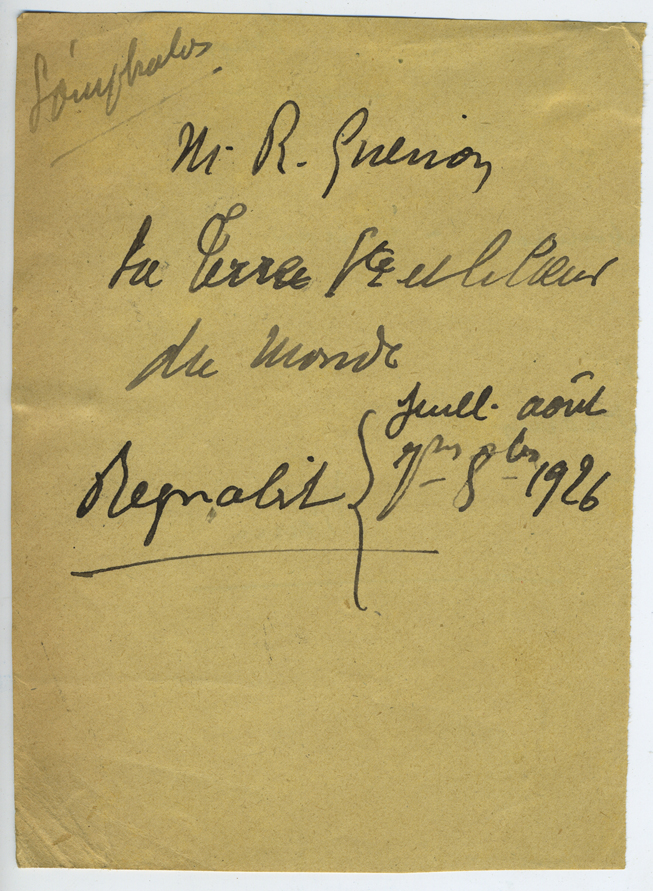 L'omphalos
M. R. Guénon
La Terre Ste et le Cœur
du Monde
Regnabit
Juill. août
7bres 8bres 1926